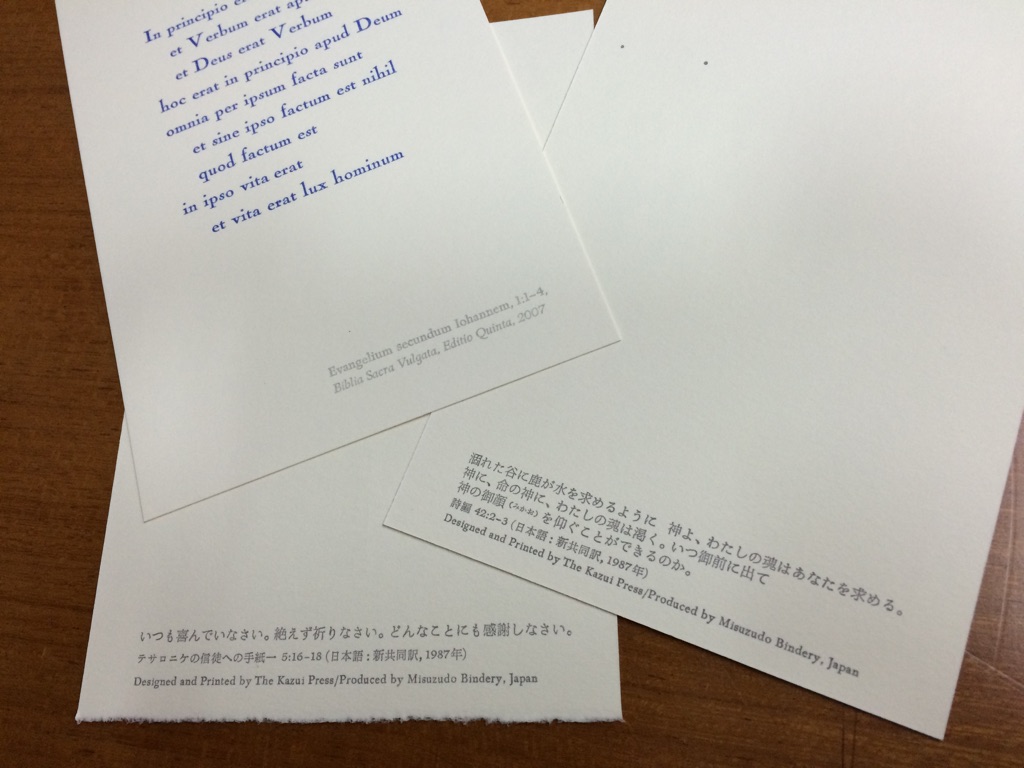 In principio
et Verbum erat
et Deus erat Verbum
hoc erat in principio apud Deum
omnia per ipsum facta sunt
et sine ipso factum est nihil
quod factum est
in ipso vita erat
et vita erat lux hominum
Evangelium secundum Iohannem, 1:1–4,
Biblia Sacra Vulgata, Editio Quinta, 2007
涸れた谷に鹿が水を求めるように　神よ、わたしの魂はあなたを求める。
神に、命の神に、わたしの魂は渇く。いつ御前に出て
神の御顔(みかお)を仰ぐことができるのか。
詩編 42:2–3 (日本語:新共同訳, 1987年)
Designed and Printed by The Kazui Press/Produced by Misuzudo Bindery, Japan
いつも喜んでいなさい。絶えず祈りなさい。どんなことにも感謝しなさい。
テサロニケの信徒への手紙一 5:16–18 (日本語:新共同訳, 1987年)
Designed and Printed by The Kazui Press/Produced by Misuzudo Bindery, Japan